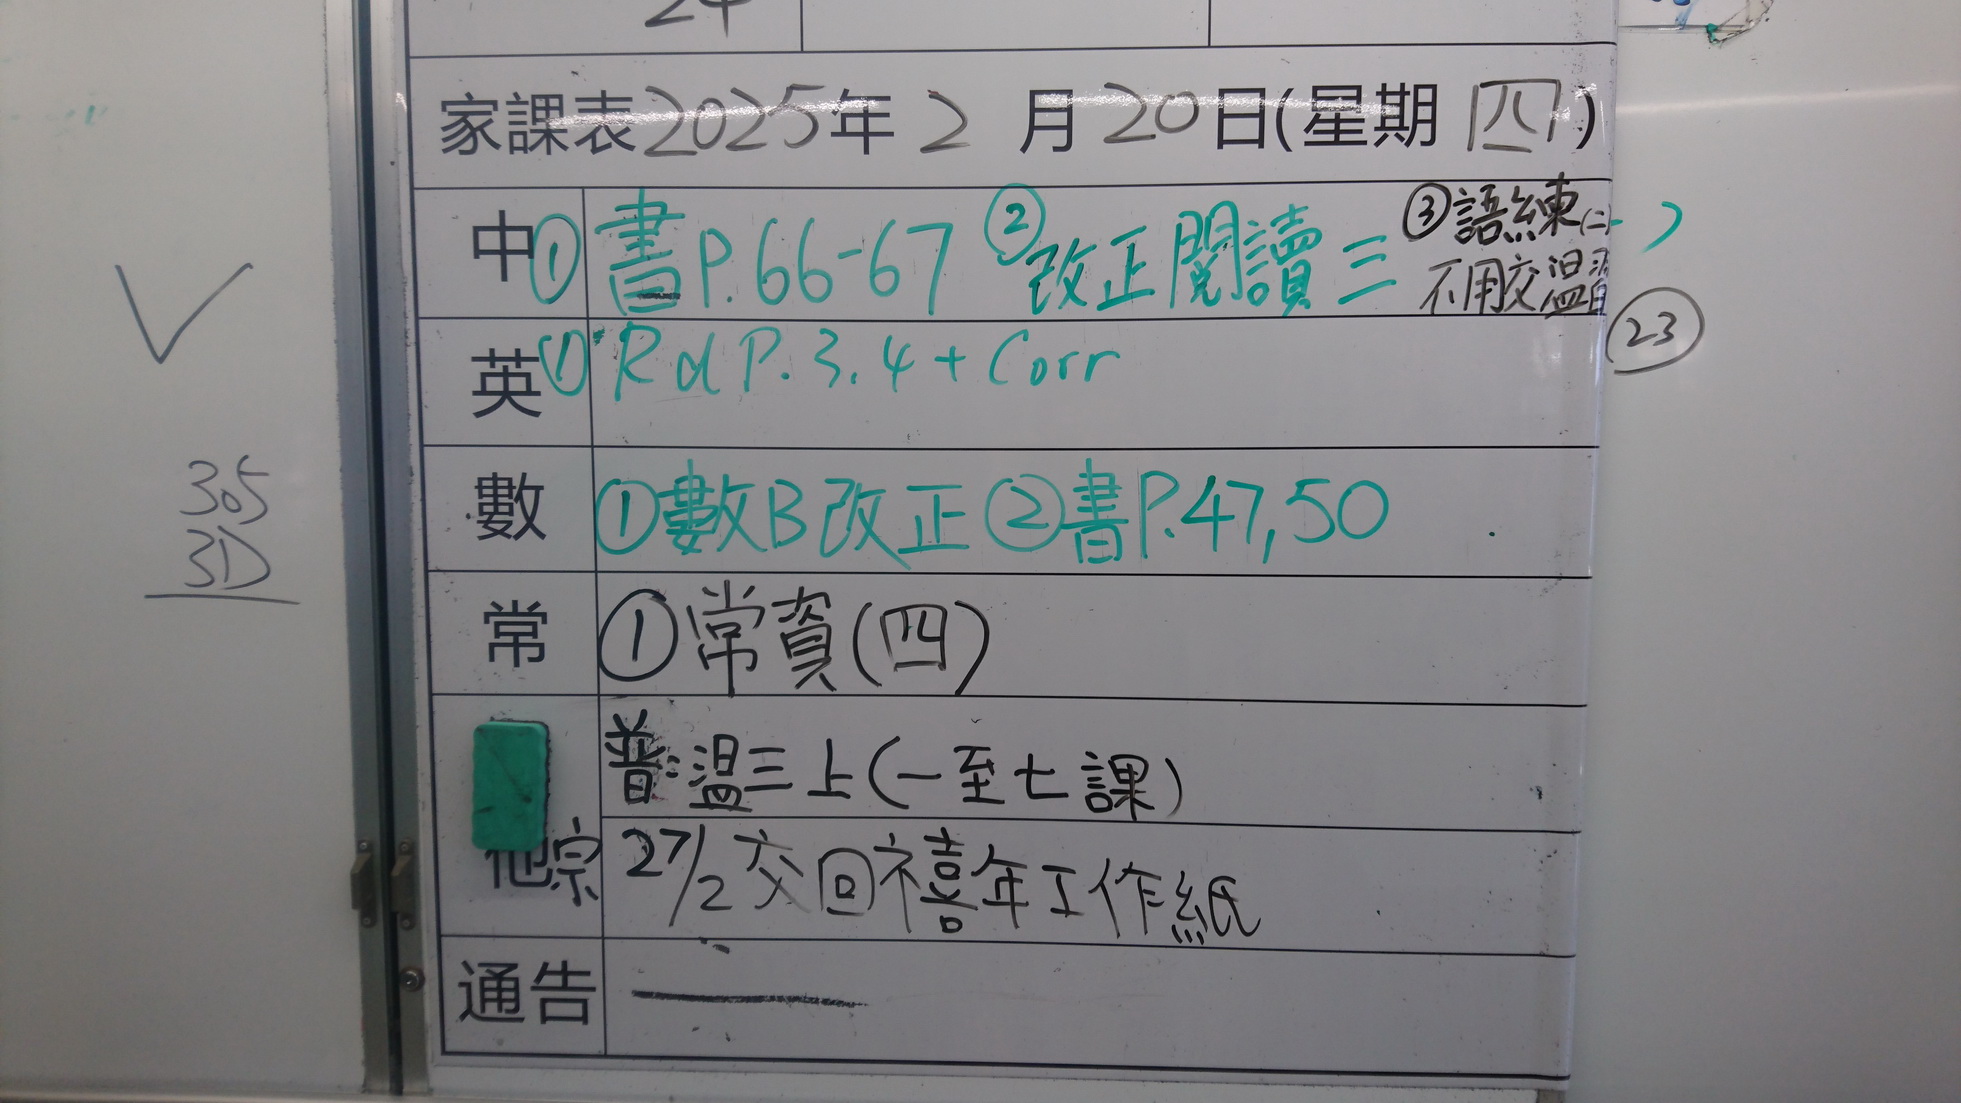 24
家課表2025年2月20日(星期四)
中 ①書P.66-67 ②改正閱讀三 ③語練(二)
不用交溫習
英 ①Rd P.3.4 + Corr
23
數 ①數B改正 ②書P.47,50
305
3D
常 ①常資(四)
普:溫三上(一至七課)
他 宗 27/2交回禧年工作紙
通告